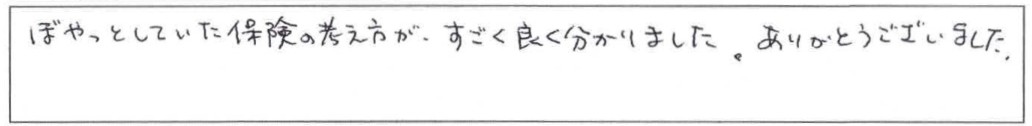 ぼやっとしていた保険の考え方が、すごく良く分かりました。ありがとうございました。